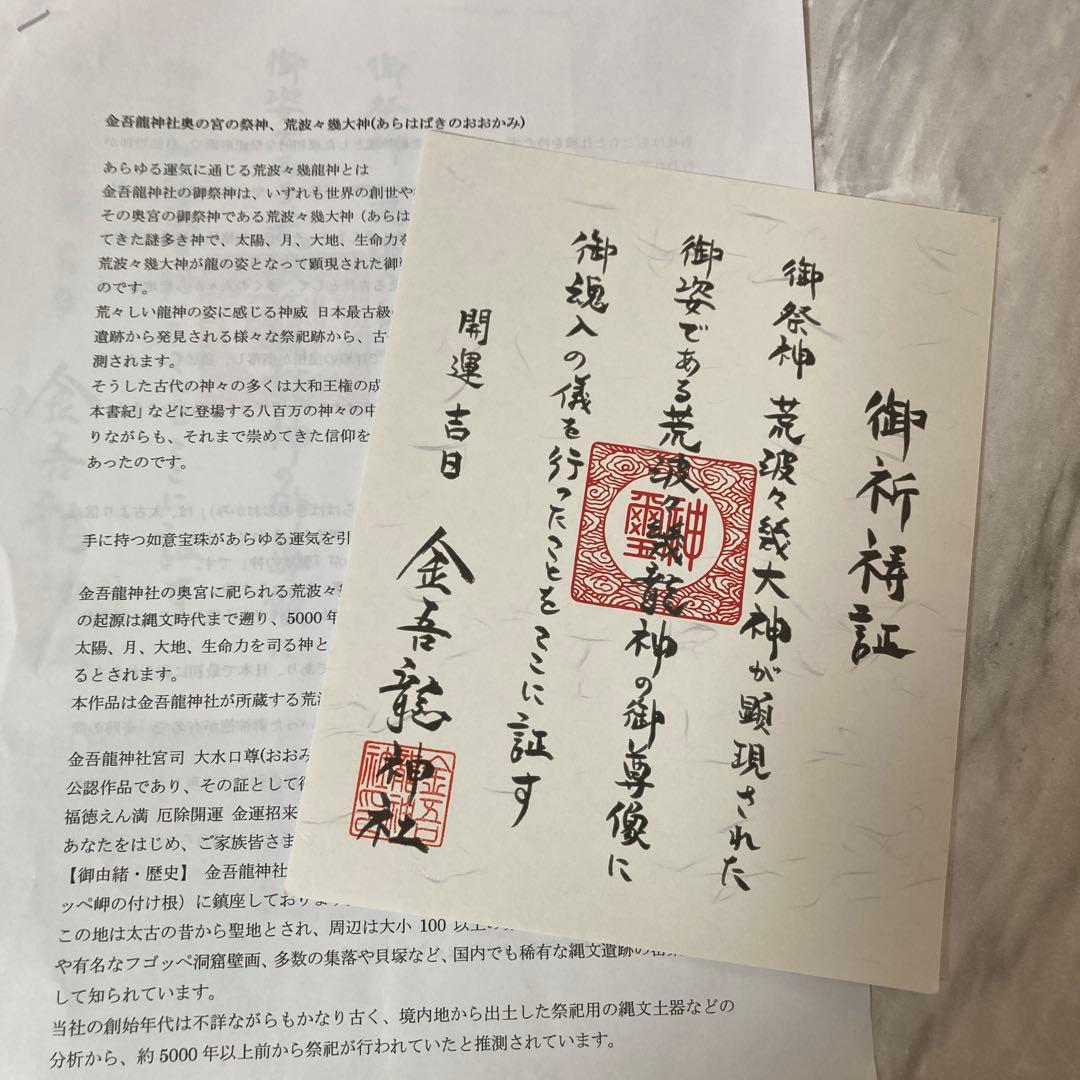 金吾龍神社奥の宮の祭神、荒波々幾大神(あらはばきのおおかみ)
あらゆる運気に通じる荒波々幾龍神とは
金吾龍神社の御祭神は、いずれも世界の創世や
その奥宮の御祭神である荒波々幾大神（あらは
てきた謎多き神で、太陽、月、大地、生命力を
荒波々幾大神が龍の姿となって顕現された御
のです。
荒々しい龍神の姿に感じる神威 日本最古級
遺跡から発見される様々な祭祀跡から、古
測されます。
そうした古代の神々の多くは大和王権の成
本書紀」などに登場する八百万の神々の中
りながらも、それまで崇めてきた信仰を
あったのです。
手に持つ如意宝珠があらゆる運気を引
金吾龍神社の奥宮に祀られる荒波々
の起源は縄文時代まで遡り、5000年
太陽、月、大地、生命力を司る神と
るとされます。
本作品は金吾龍神社が所蔵する荒波
金吾龍神社宮司 大水口尊(おおみ
公認作品であり、その証として御
福徳えん満 厄除開運 金運招来
あなたをはじめ、ご家族皆さま
【御由緒・歴史】 金吾龍神社
ッペ岬の付け根）に鎮座しております
この地は太古の昔から聖地とされ、周辺は大小 100 以上の
や有名なフゴッペ洞窟壁画、多数の集落や貝塚など、国内でも稀有な縄文遺跡の
して知られています。
当社の創始年代は不詳ながらもかなり古く、境内地から出土した祭祀用の縄文土器などの
分析から、約 5000 年以上前から祭祀が行われていたと推測されています。
御祈祷証
御祭神 荒波々幾大神が顕現された
御姿である荒波々幾龍神の御尊像に
御魂入の儀を行ったことをここに証す
開運吉日 金吾龍神社
神璽